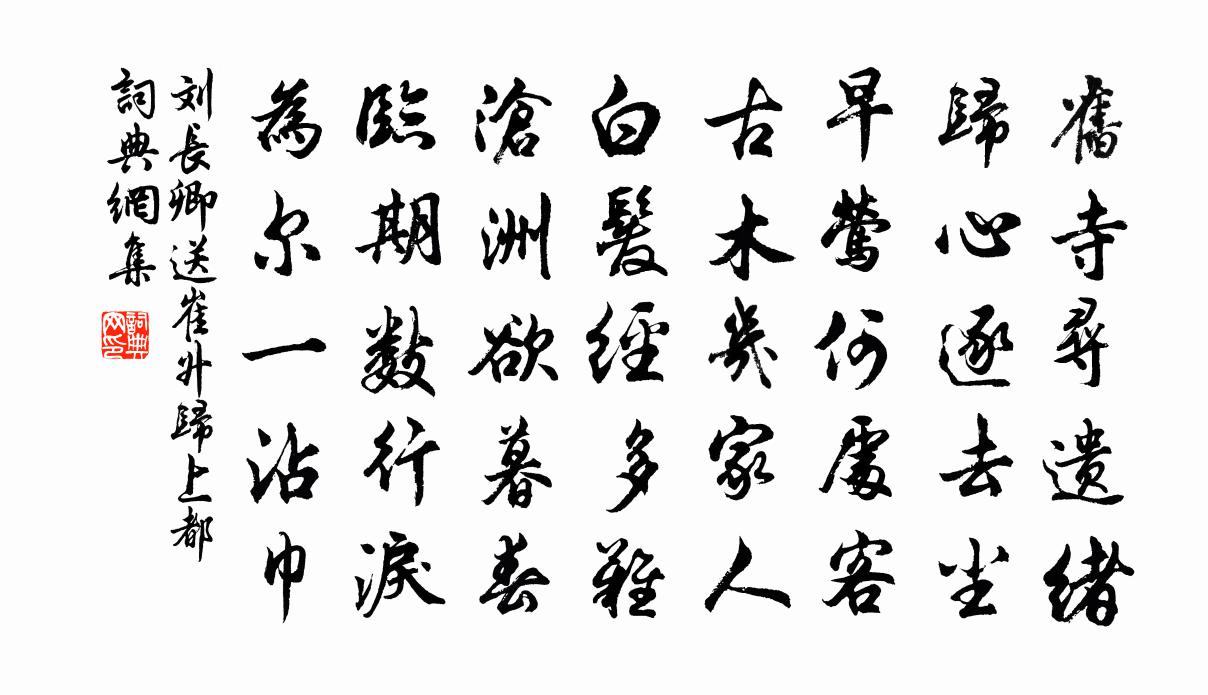 舊寺尋遺緒
歸心逐去尘
早莺何處客
古木幾家人
白髮經多難
滄洲欲暮春
臨期數行淚
為尔一沾巾
刘長卿送崔升歸上都
詞典網集
詞典网印